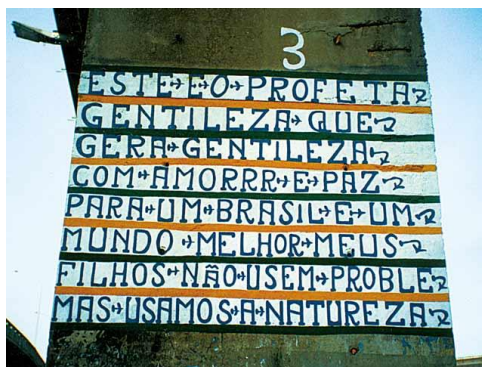 3
ESTE E O PROFETA
GENTILEZA QUE
GERA GENTILEZA
COM AMORRR E PAZ
PARA UM BRASIL E UM
MUNDO MELHOR MEUS
FILHOS NÃO USEM PROBLE
MAS USAMOS A NATUREZA